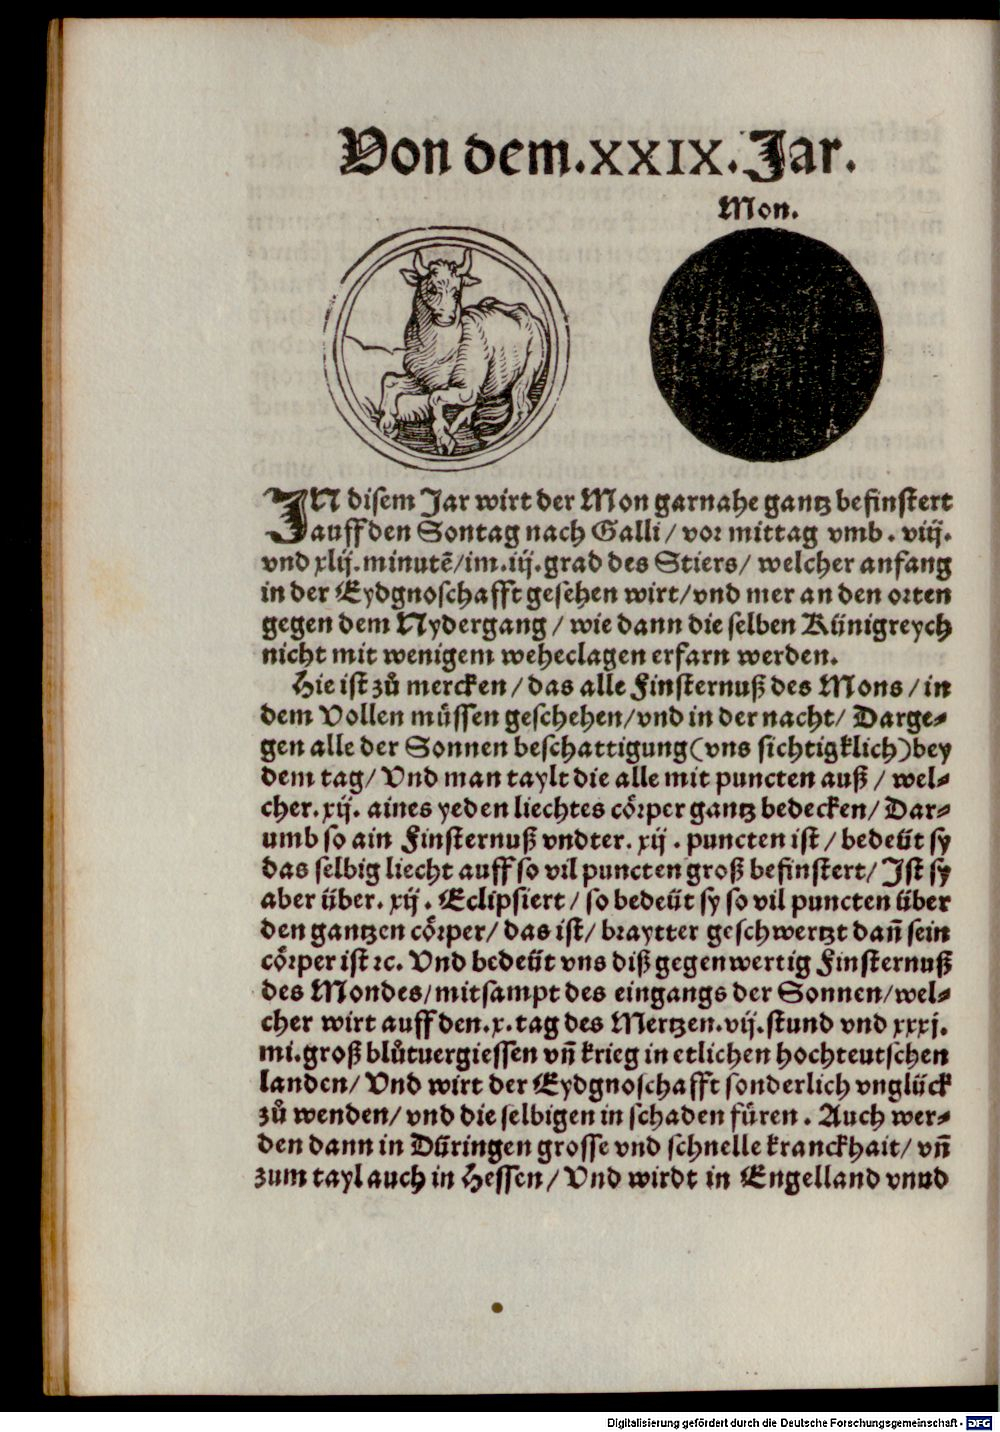 Von dem.XXIX.Jar.
Mon.
JN disem Jar wirt der Mon garnahe gantz befinstert
auff den Sontag nach Galli / vor mittag vmb . viij.
vnd xlij. minutẽ/im.iij.grad des Stiers/ welcher anfang
in der Eydgnoschafft gesehen wirt/vnd mer an den orten
gegen dem Nydergang / wie dann die selben Künigreych
nicht mit wenigem weheclagen erfarn werden.
Hie ist zů mercken / das alle Finsternuß des Mons / in
dem Vollen müssen geschehen/vnd in der nacht/ Darge-
gen alle der Sonnen beschattigung(vns sichtigklich)bey
dem tag/ Vnd man taylt die alle mit puncten auß / wel-
cher. xij. aines yeden liechtes cörper gantz bedecken/ Dar-
umb so ain Finsternuß vndter. xij . puncten ist / bedeüt sy
das selbig liecht auff so vil puncten groß befinstert/ Ist sy
aber über. xij . Eclipsiert / so bedeüt sy so vil puncten über
den gantzen cörper/ das ist/ braytter geschwertzt dañ sein
cörper ist ⁊c. Vnd bedeüt vns diß gegenwertig Finsternuß
des Mondes/mitsampt des eingangs der Sonnen/wel-
cher wirt auff den.x.tag des Mertzen.vij.stund vnd xxxj.
mi.groß blůtuergiessen vñ krieg in etlichen hochteutschen
landen/ Vnd wirt der Eydgnoschafft sonderlich vnglück
zů wenden/ vnd die selbigen in schaden füren . Auch wer-
den dann in Düringen grosse vnd schnelle kranckhait/ vñ
zum tayl auch in Hessen / Vnd wirdt in Engelland vnnd
Digitalisierung gefördert durch die Deutsche Forschungsgemeinschaft - DFG